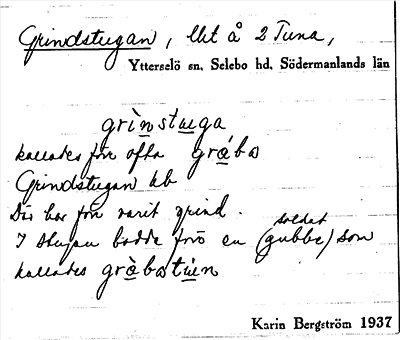 Grindstugan, lht å 2 Tuna,
Ytterselö sn, Selebo hd, Södermanlands län
grìnstuga
kallades förr ofta gråbo
Grindstugan kb
Där har förr varit grind.
I stugan bodde förr en (gubbe) som
soldat
kallades gràbotun
Karin Bergström 1937